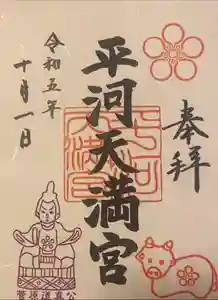 奉拝
平河天満宮
令和五年
十月一日
平河
天満宮
菅原道真公